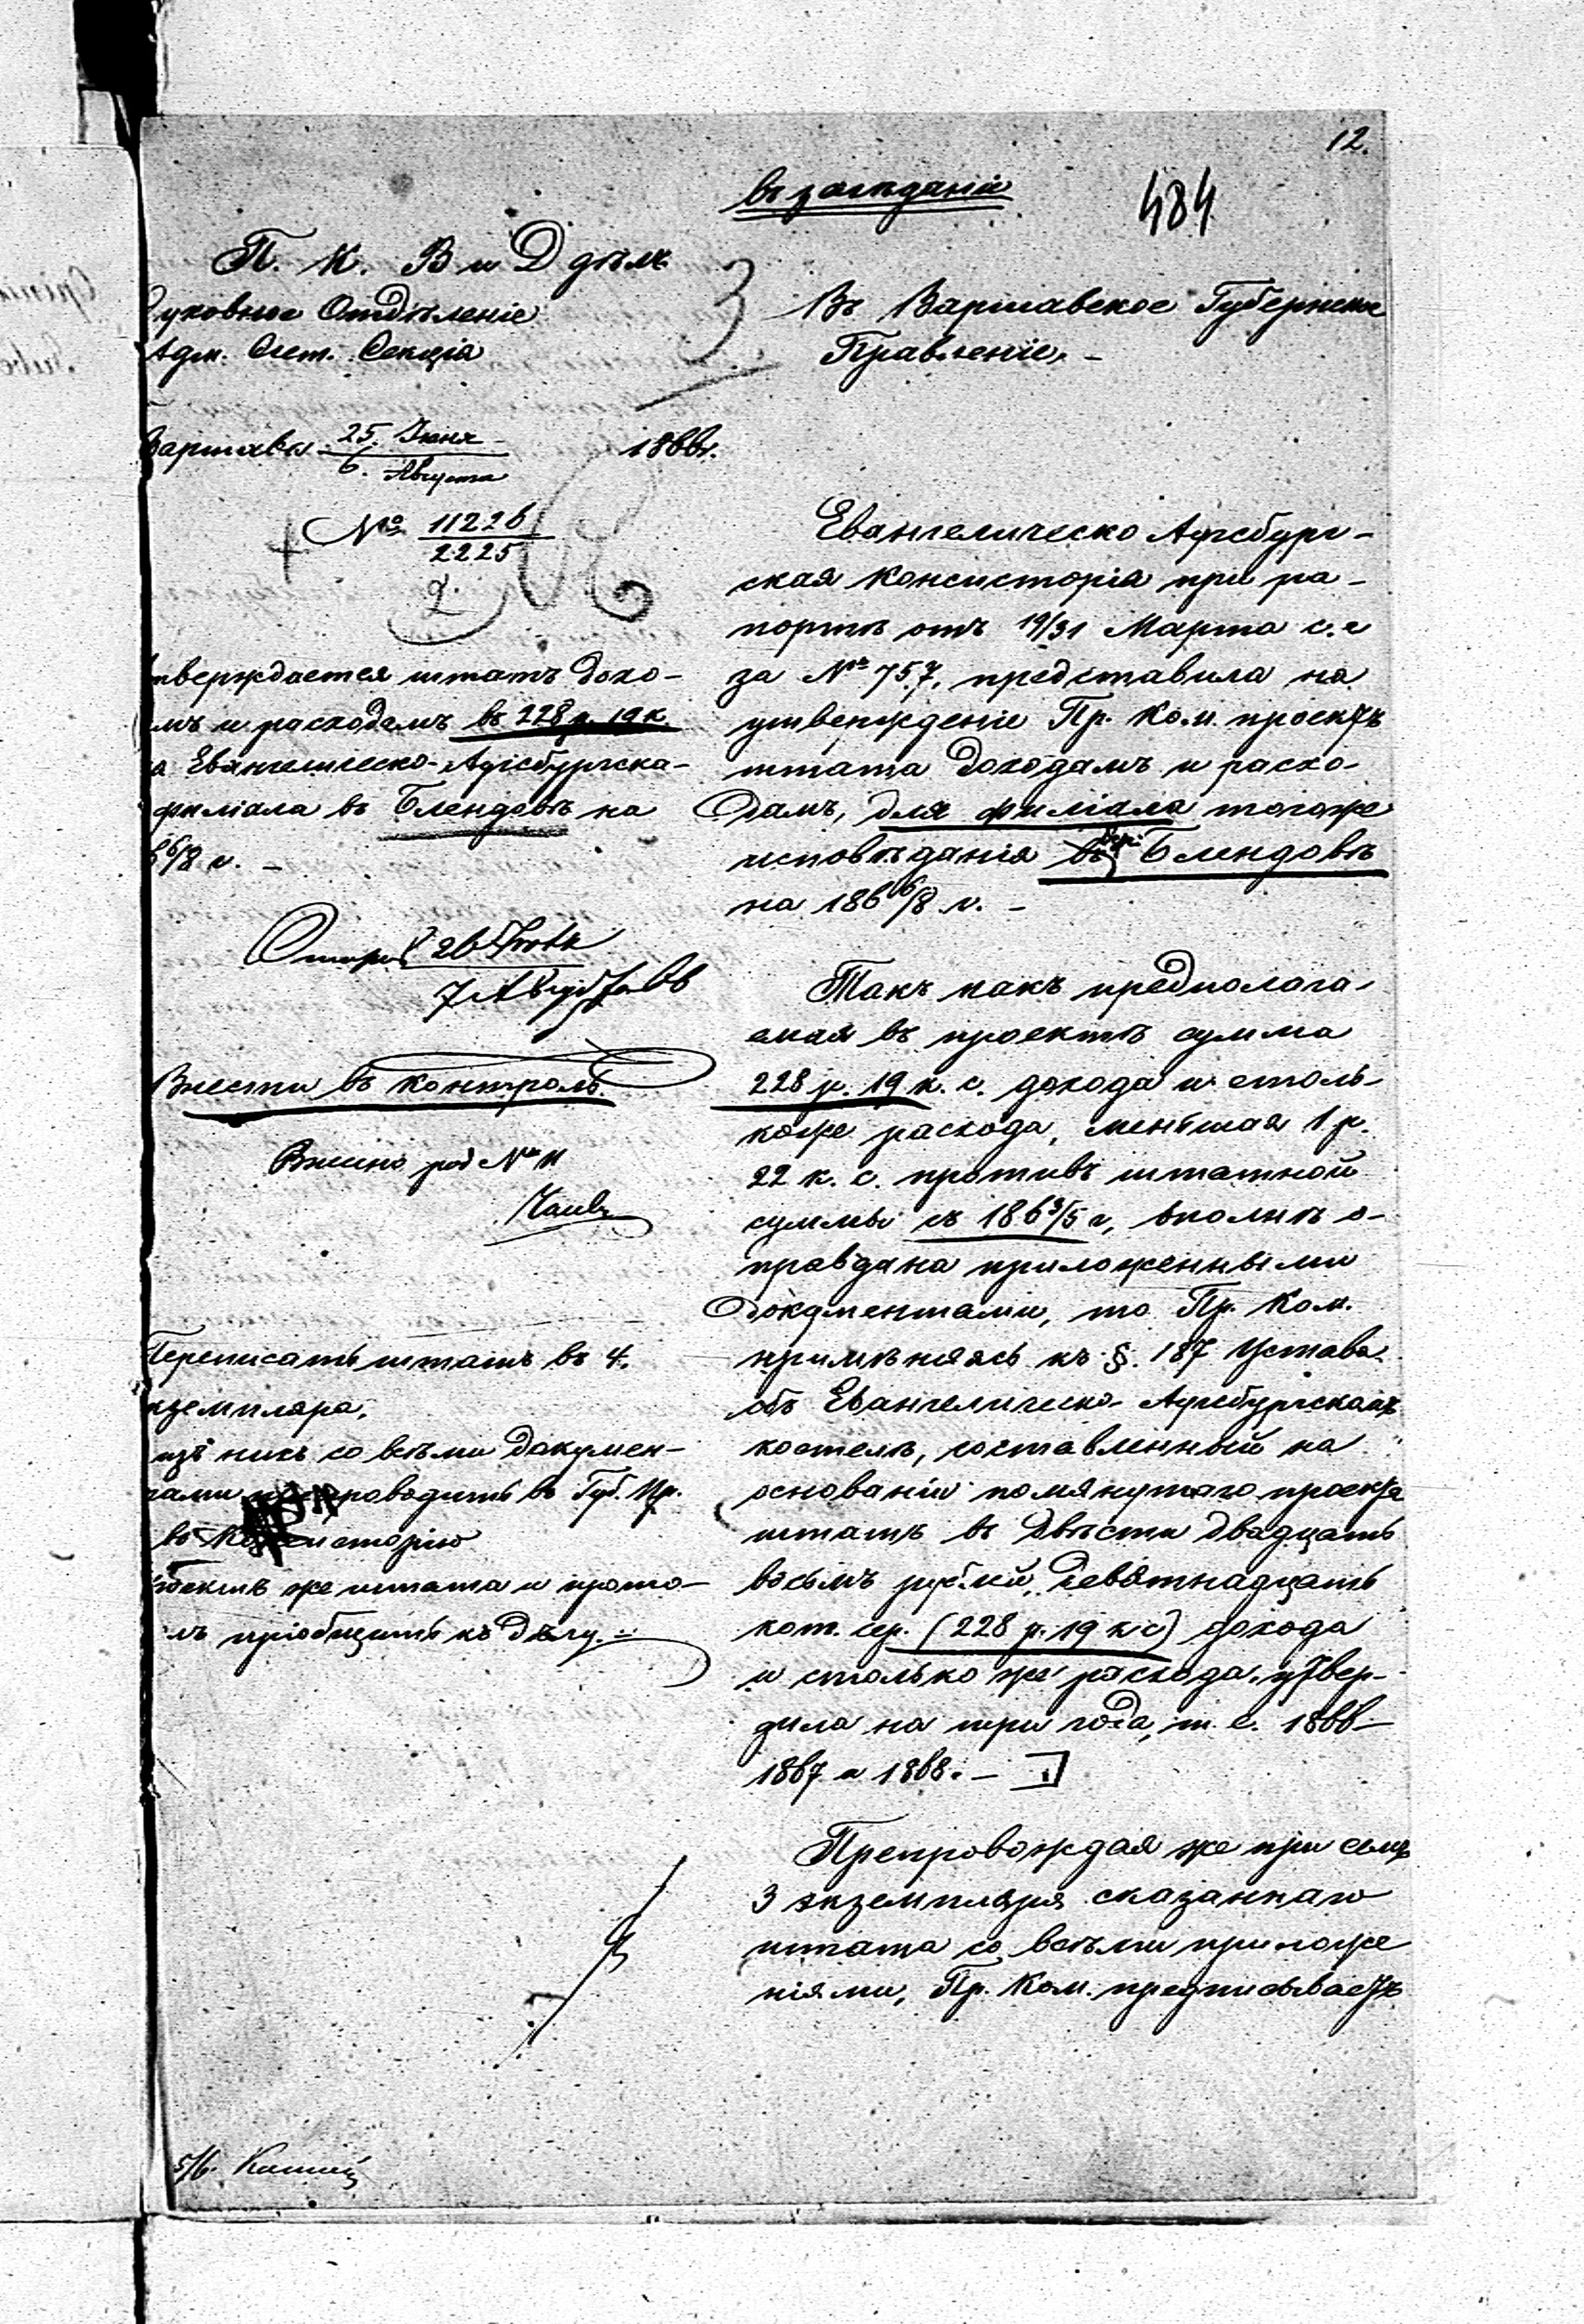 12.
въ засѣданіи
484
П. К. В и Д дѣлъ
уховное Отдѣленіе
Адм. Счет. Секція
3
Въ Варшавское Губернское
Правленіе. –
Варшава 25. Іюня
6. Августа
1866 г.
№ 11226
2225
2.
тверждается штатъ дохо-
мъ и расходамъ въ 228 р. 19 к
а Евангелическо-Аугсбургска-
филіала въ Блендовѣ на
6/8 г. –
Отпр 26 Іюля
7 Августа 66
Внести въ контроль.
Внесено под № 11
Переписать штатъ въ 4.
кземпляра,
изъ нихъ со всѣми докумен-
тами препроводить въ Губ. Пр.
въ Консисторію
роектъ же штата и прото-
лъ пріобщить къ дѣлу. –
Евангелическо Аугсбург-
ская Консисторія при ра-
портѣ отъ 19/31 Марта с. г
за № 757, представила на
утвержденіе Пр. Ком. проектъ
штата доходамъ и расхо-
дамъ, для филіала тогоже
исповѣданія въ Блендовѣ
на 186 6/8 г. –
Такъ какъ предполага-
емая въ проектѣ сумма
228 р. 19 к. с. дохода и столь-
коже расхода, меньшая 1 р.
22 к. с. противъ штатной
суммы съ 186 3/5 г, вполнѣ о-
правдана приложенными
документами, то Пр. Ком.
примѣняясь къ §. 187 Устава
объ Евангелическо-Аугсбургскомъ
костелѣ, составленный на
основаніи помянутаго проекта
штатъ въ двѣсти двадцать
восемь рублей, девятнадцать
коп. сер. (228 р. 19 к с) дохода
и столько же расхода, утвер-
дила на три года, т. е. 1866
1867 и 1868. –
Препровождая же при семъ
3 экземпляра сказаннаго
штата со всѣми приложе
ніями, Пр. Ком. предписываетъ
5/6.